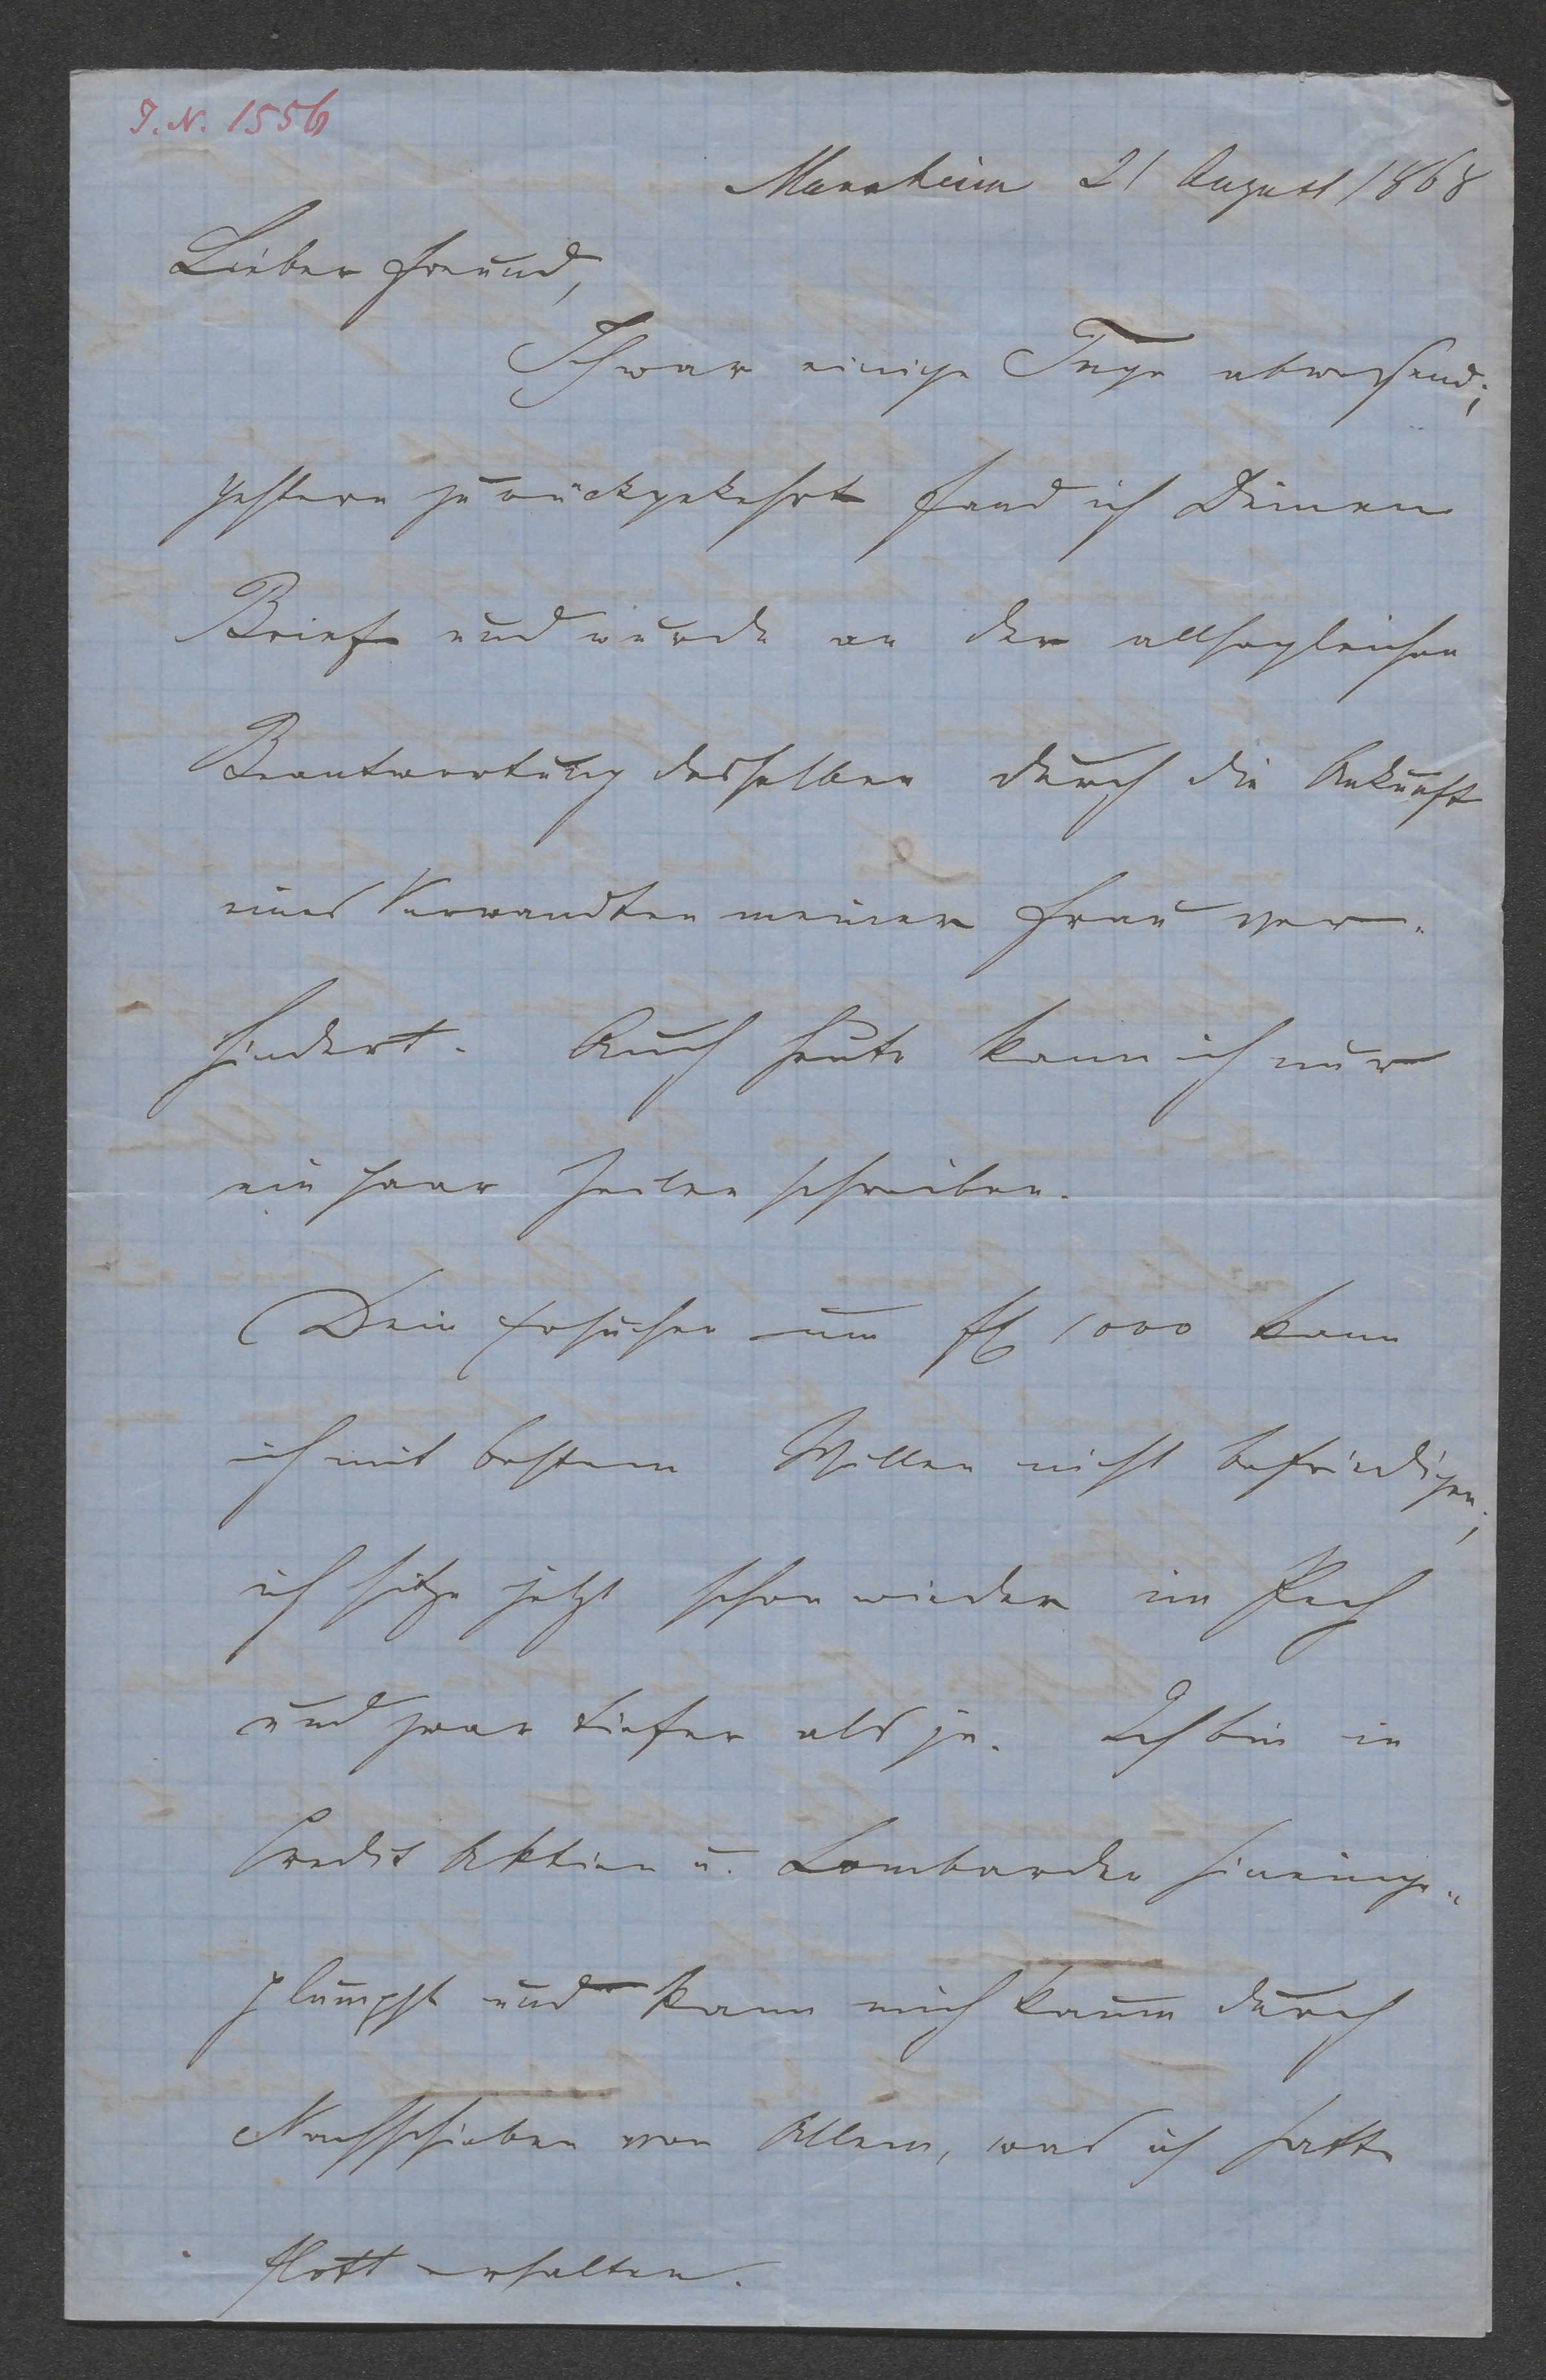 J. N. 1556
Mannheim 21 August 1868
Lieber Freund,
Ich war einige Tage abwesend;
gestern zurückgekehrt fand ich Deinen
Brief und wurde an der allsogleichen
Beantwortung desselben durch die Ankunft
eines Verwandten meiner Frau ver-
hindert. Auch heute kann ich nur
ein paar Zeilen schreiben.
Dein Ersuchen um fl 1000 kann
ich mit bestem Willen nicht befriedigen;
ich sitze jetzt schon wieder im Pech
und zwar tiefer als je. Ich bin in
Credit Aktien u. Lombarden hineinge-
plumpst und kann mich kaum durch
Nachschieben von Allem, was ich hatte
flott erhalten.